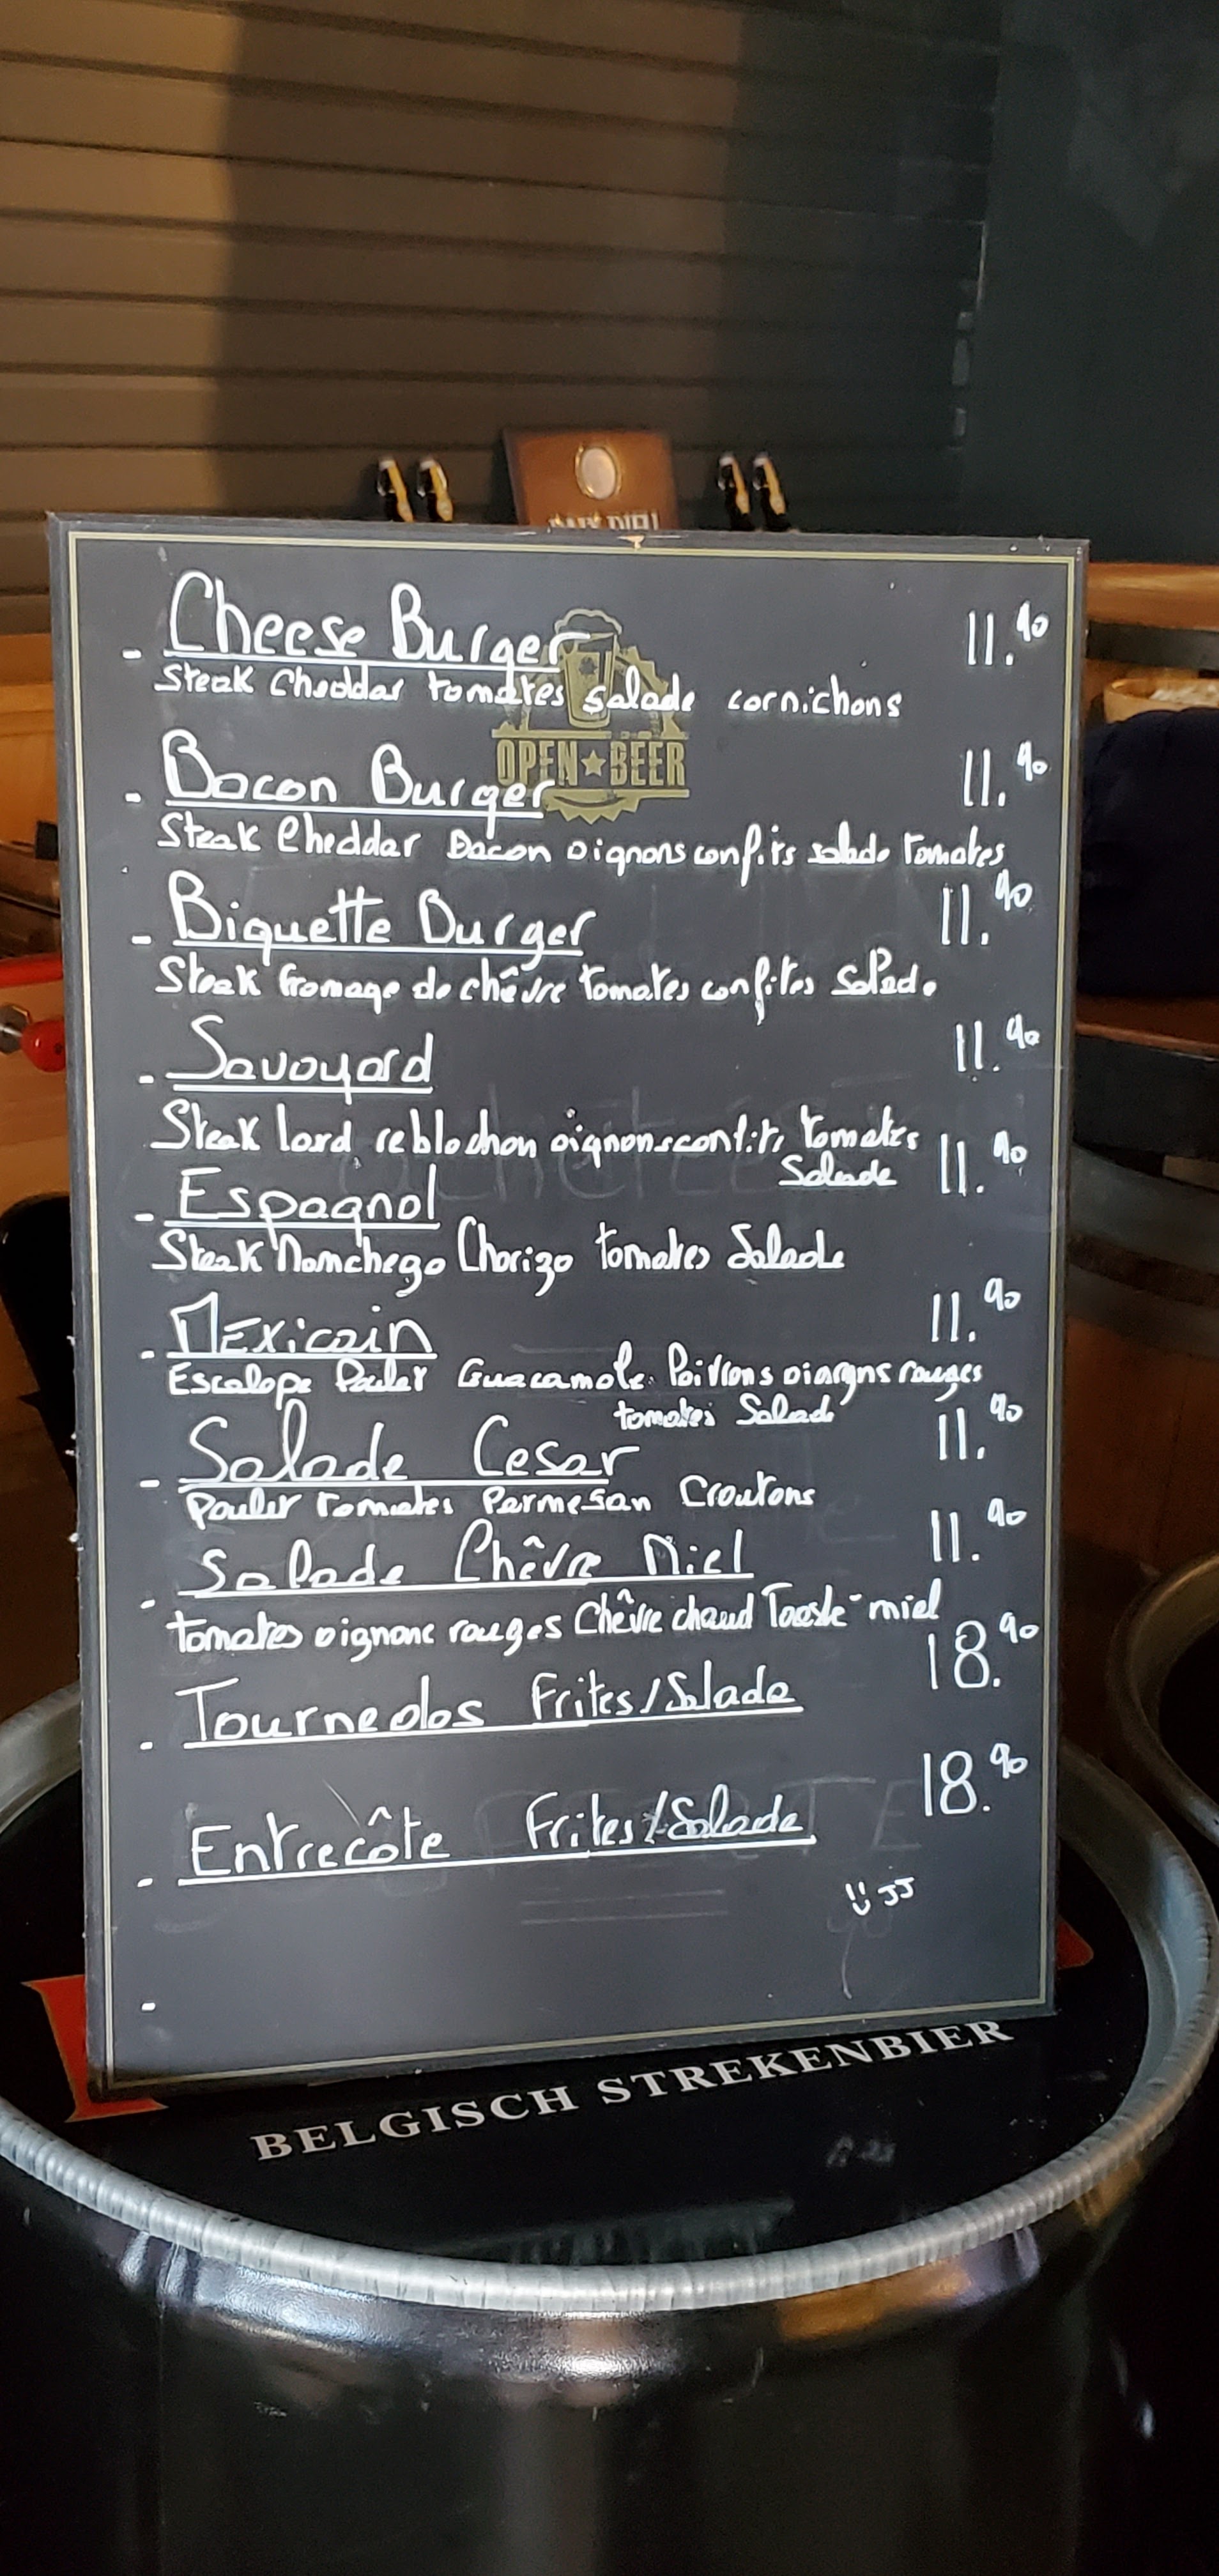 - Cheese Burger 11.90
Steak Cheddar tomates salade cornichons
OPEN★BEER
- Bacon Burger 11.90
Steak Cheddar Bacon oignons confits salade tomates
- Biquette Burger 11.90
Steak fromage de chêvre tomates confites Salad.
- Savoyard 11.90
Steak lard reblochon oignons confits tomates
Salade
- Espagnol 11.90
Steak Manchego Chorizo tomates Salade
- Mexicain 11.90
Escalope Poulet Guacamole Poivrons rouges
tomates Salad
- Salade Cesar 11.90
Poulet tomates Parmesan Croutons
- Salade Chêvre Miel 11.90
tomates oignons rouges Chêvre chaud miel
- Tournedos Frites/Salade 18.90
- Entrecôte Frites/Salade 18.90
JJ
-
BELGISCH STREKENBIER